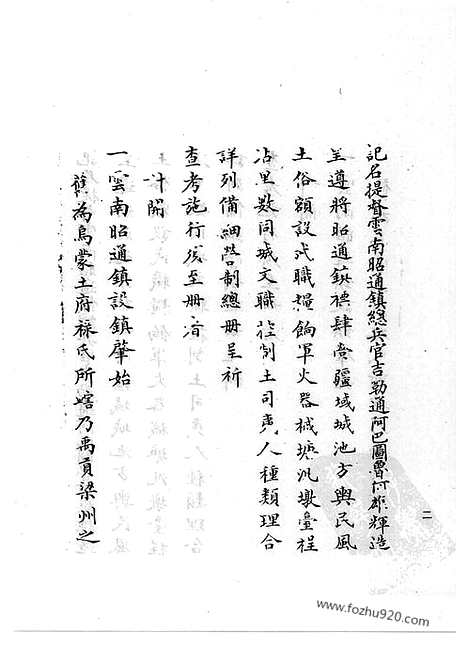 記名提督雲南昭通鎮總兵官吉勒通阿巴圖魯何雄輝造
呈遵將昭通鎮標肆營疆域城池方輿民風
土俗額設武職糧餉軍火器械塘汛墩臺程
站里數同城文職控制土司夷人種類理合
詳列備細營制總冊呈祈
查考施行須至冊者
計開
一雲南昭通鎮設鎮肇始
舊為烏蒙土府祿氏所轄乃禹貢梁州之
二
www.fozhu920.com